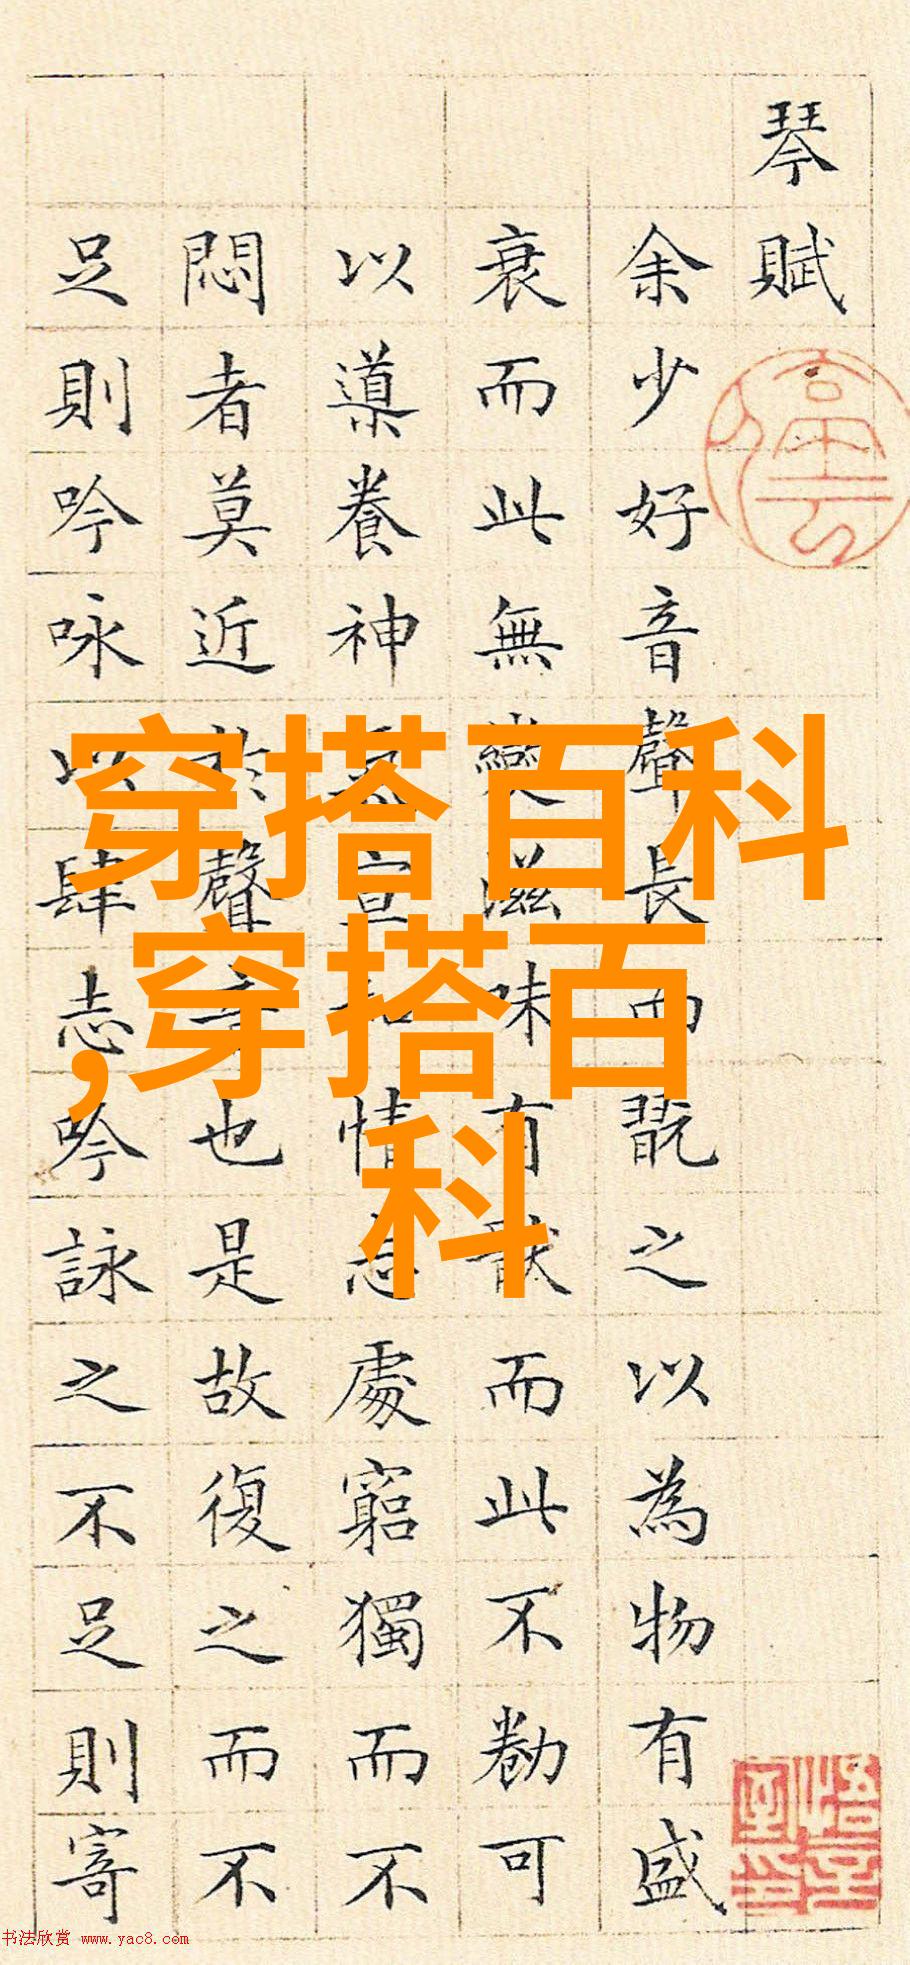 琴賦
余少好音聲長而翫之以為物有盛
衰而此無變滋味有猒而此不勌可
以導養神宣和情志處窮獨而不
悶者莫近於聲音也是故復之而不
足則吟咏以肆志吟詠之不足則寄
穿搭百科
,穿搭百
科
悟言室印
书法欣赏 www.yac8.com